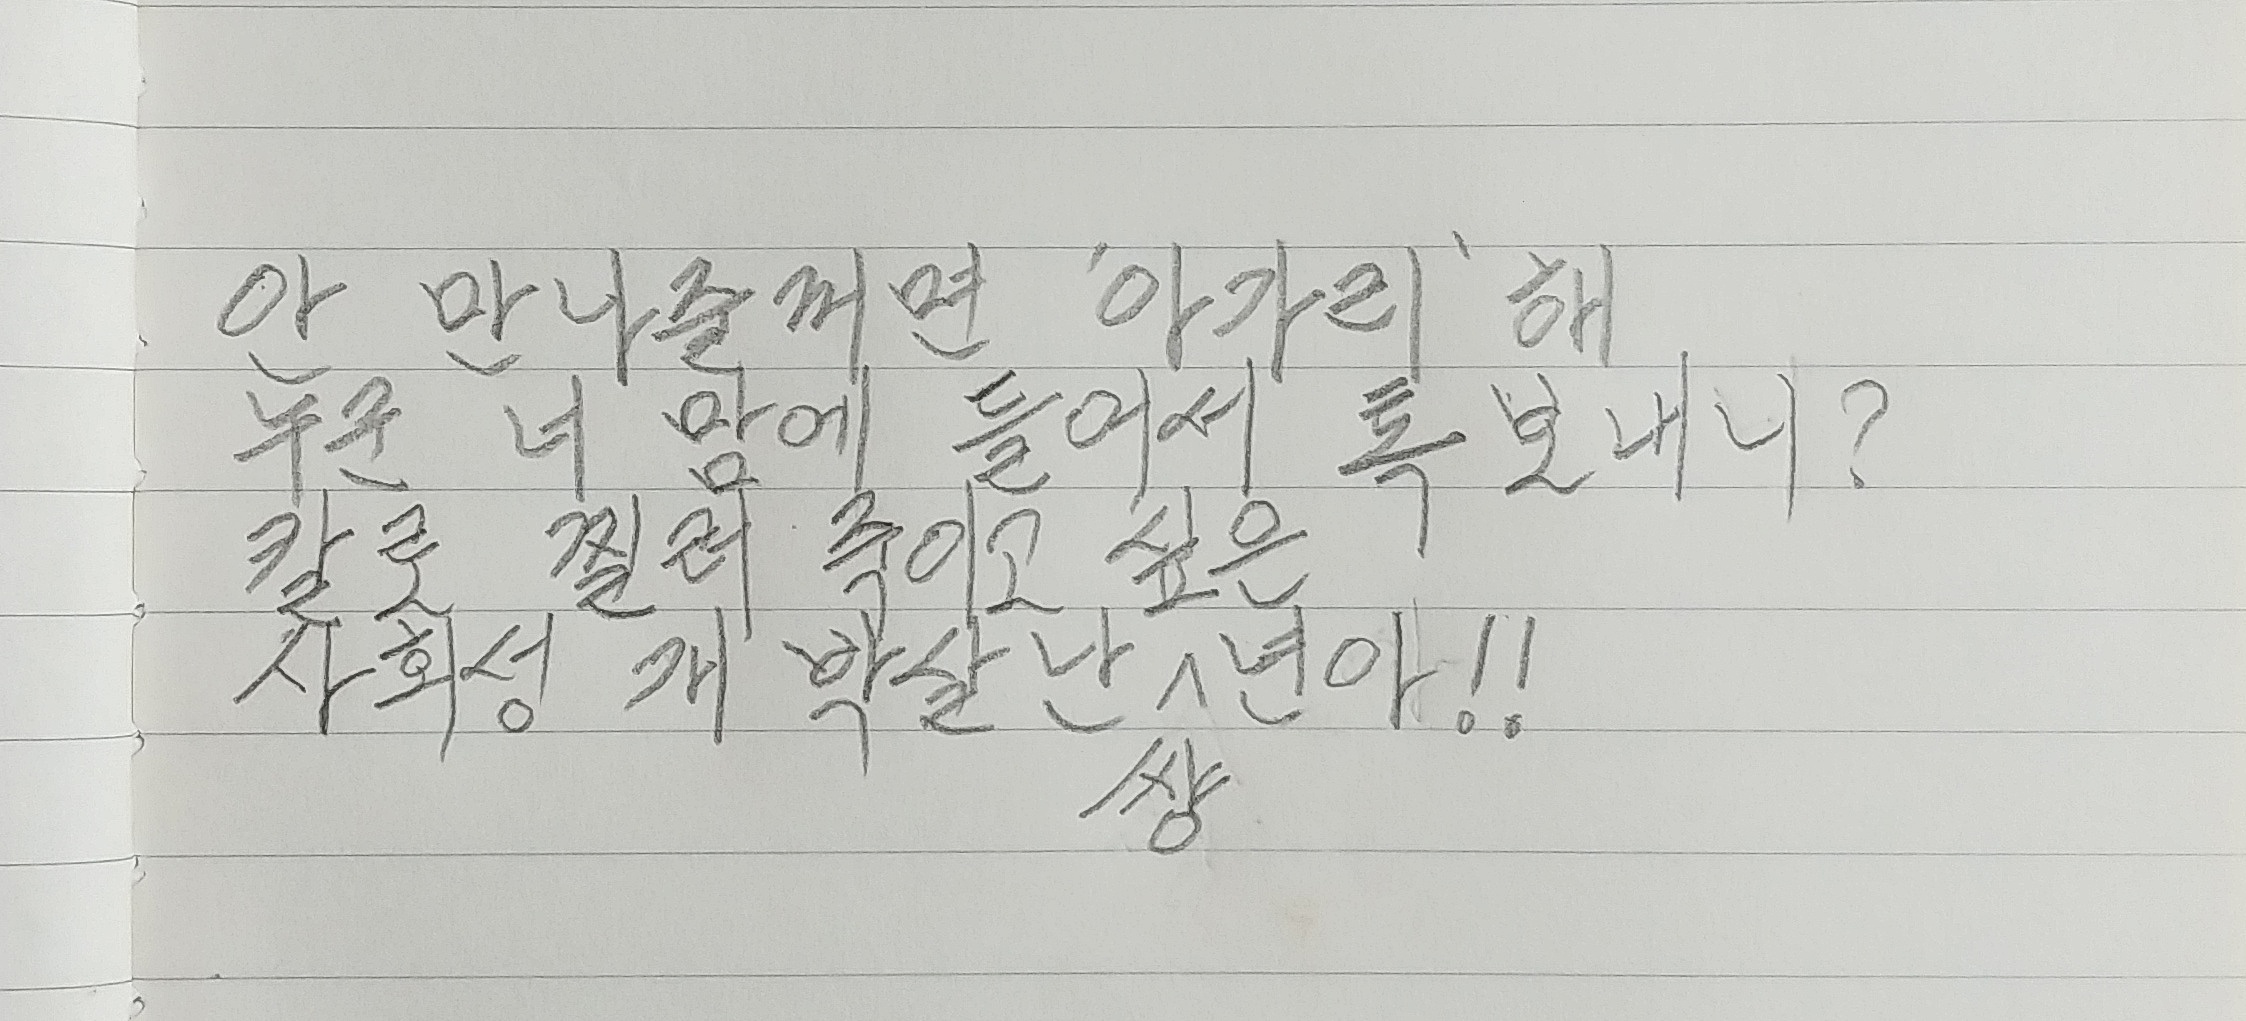 안 만나줄꺼면 '아가리' 해
누군 너 맘에 들어서 톡 보내니?
칼로 찔러 죽이고 싶은
사회성 개 박살난^년아!!
썅